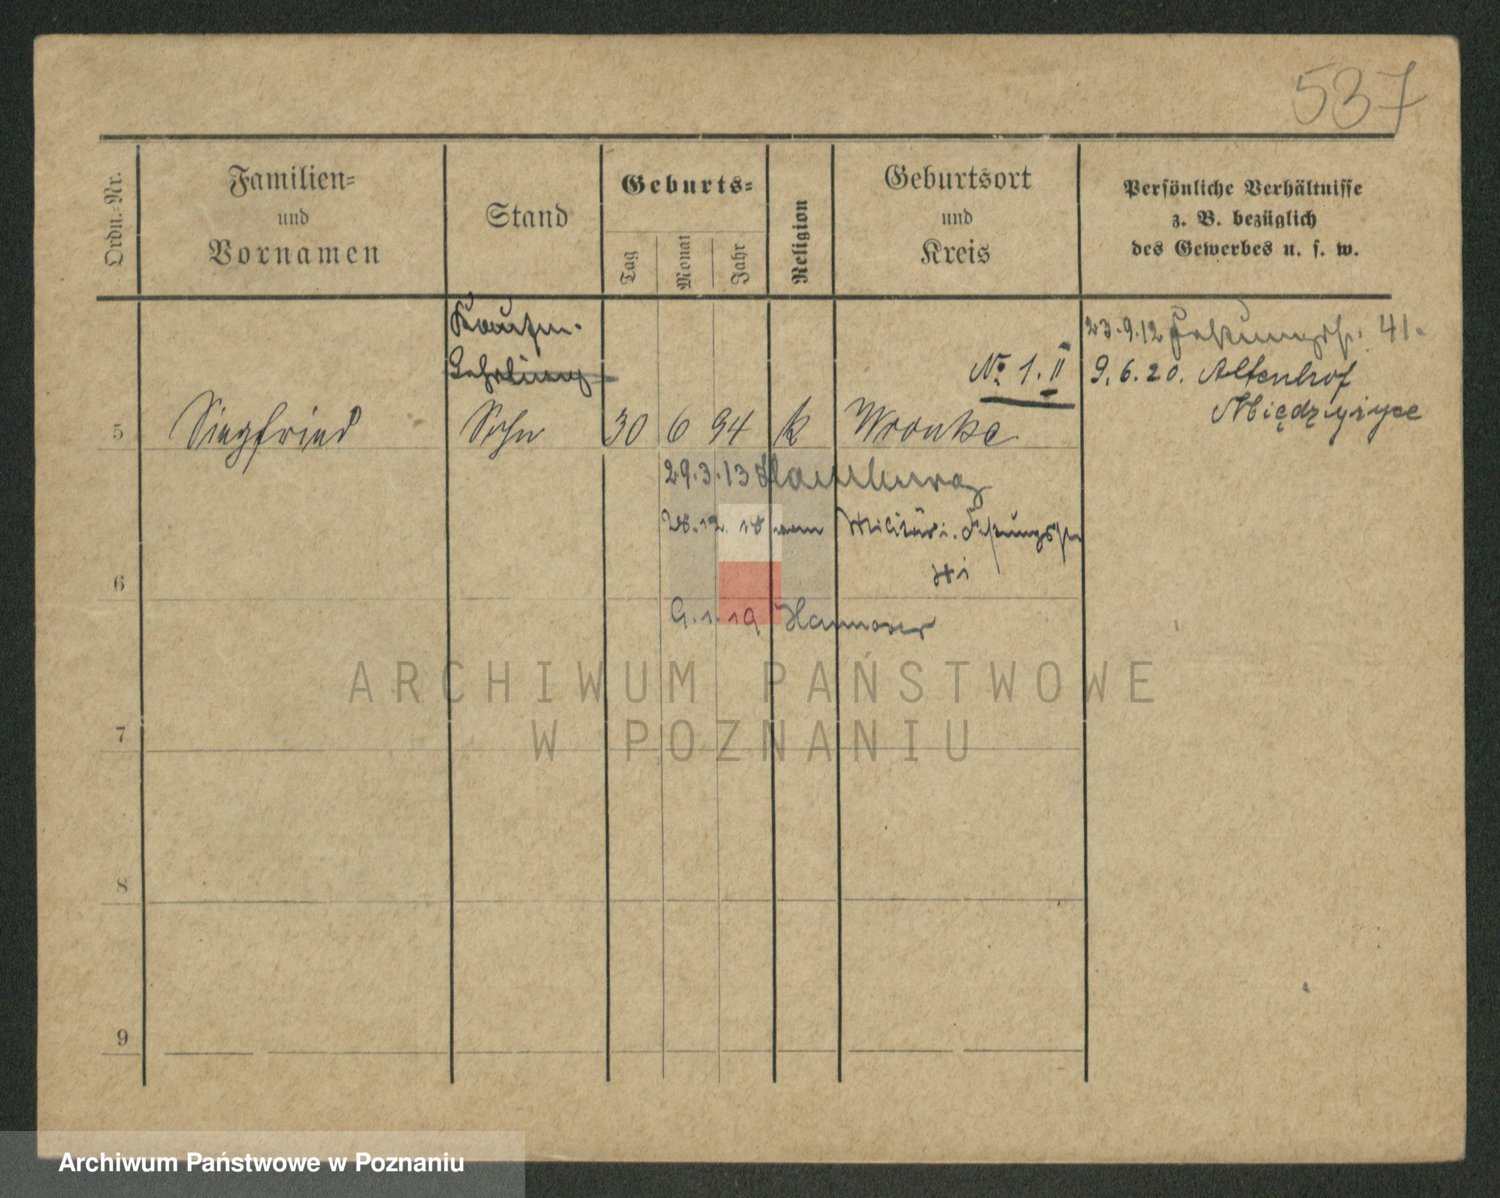 537
Ordn.-Nr.
Familien-
und
Vornamen
Stand
Geburts-
Tag
Monat
Jahr
Religion
Geburtsort
und
Kreis
Persönliche Verhältnisse
z. B. bezüglich
des Gewerbes u. s. w.
Kaufm.
Lehrling
No 1. II
23.9.12 41.
9.6.20. Altenhof
5 Siegfried Sohn 30 6 94 k Wronke
29.3.13 Hamburg
28.12.18 vom Militär i.
6
9.1.19 Hannover
7
8
9
ARCHIWUM PAŃSTWOWE
W POZNANIU
Archiwum Państwowe w Poznaniu